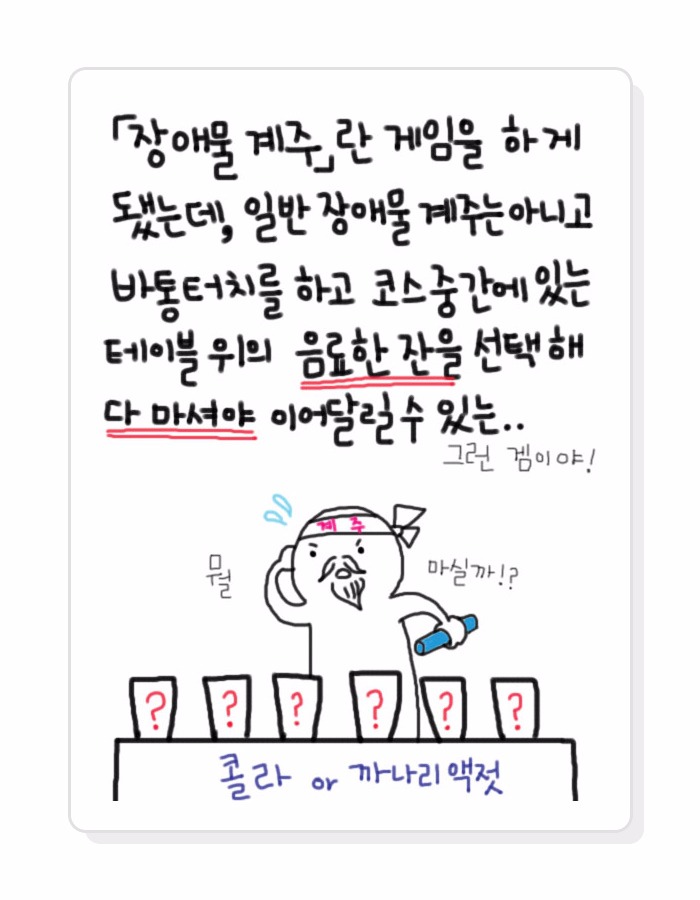 「장애물 계주」란 게임을 하게
됐는데, 일반 장애물 계주는아니고
바통터치를 하고 코스중간에 있는
테이블 위의 음료한 잔을 선택해
다 마셔야 이어달릴수 있는..
그런 겜이야!
계주
뭘
마실까!?
? ? ? ? ? ?
콜라 or 까나리액젓